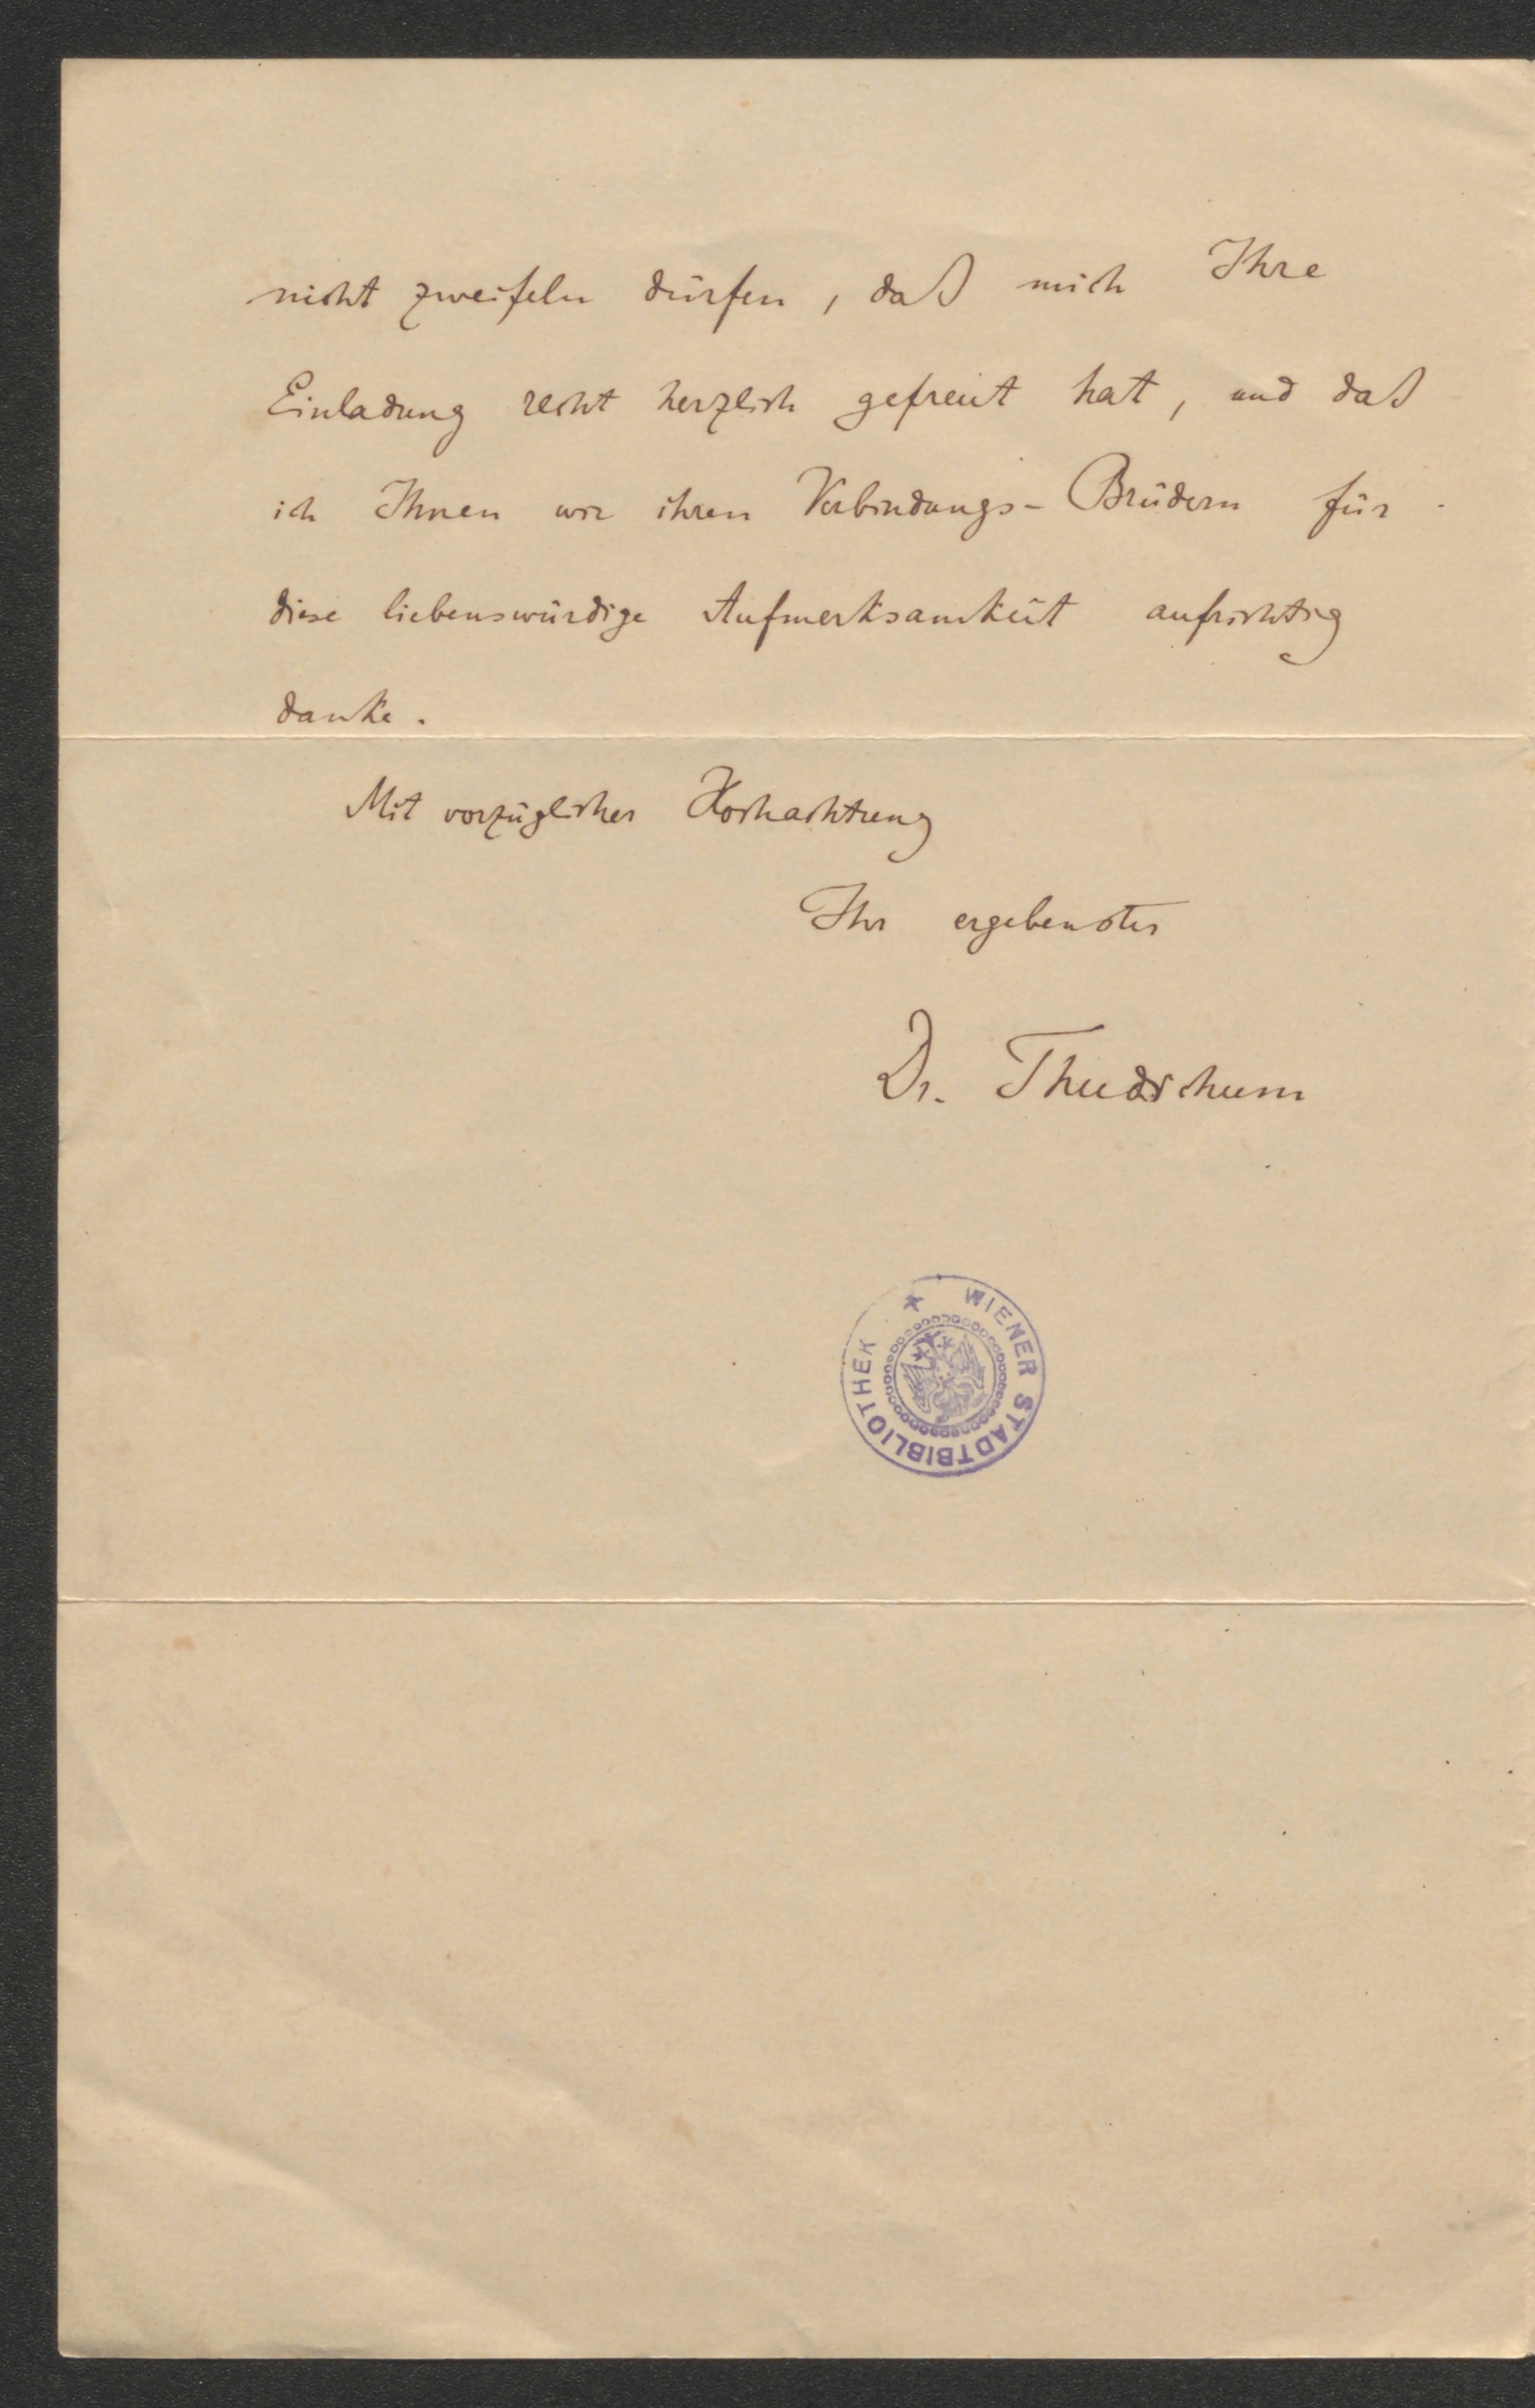 nicht zweifeln dürfen, daß mich Ihre
Einladung recht herzlich gefreut hat, und daß
ich Ihnen wie ihren Verbindungs-Brüdern für
diese liebenswürdige Aufmerksamkeit aufrichtig
danke.
Mit vorzüglicher Hochachtung
Ihr ergebenster
Dr. Thudichum
WIENER STADTBIBLIOTHEK